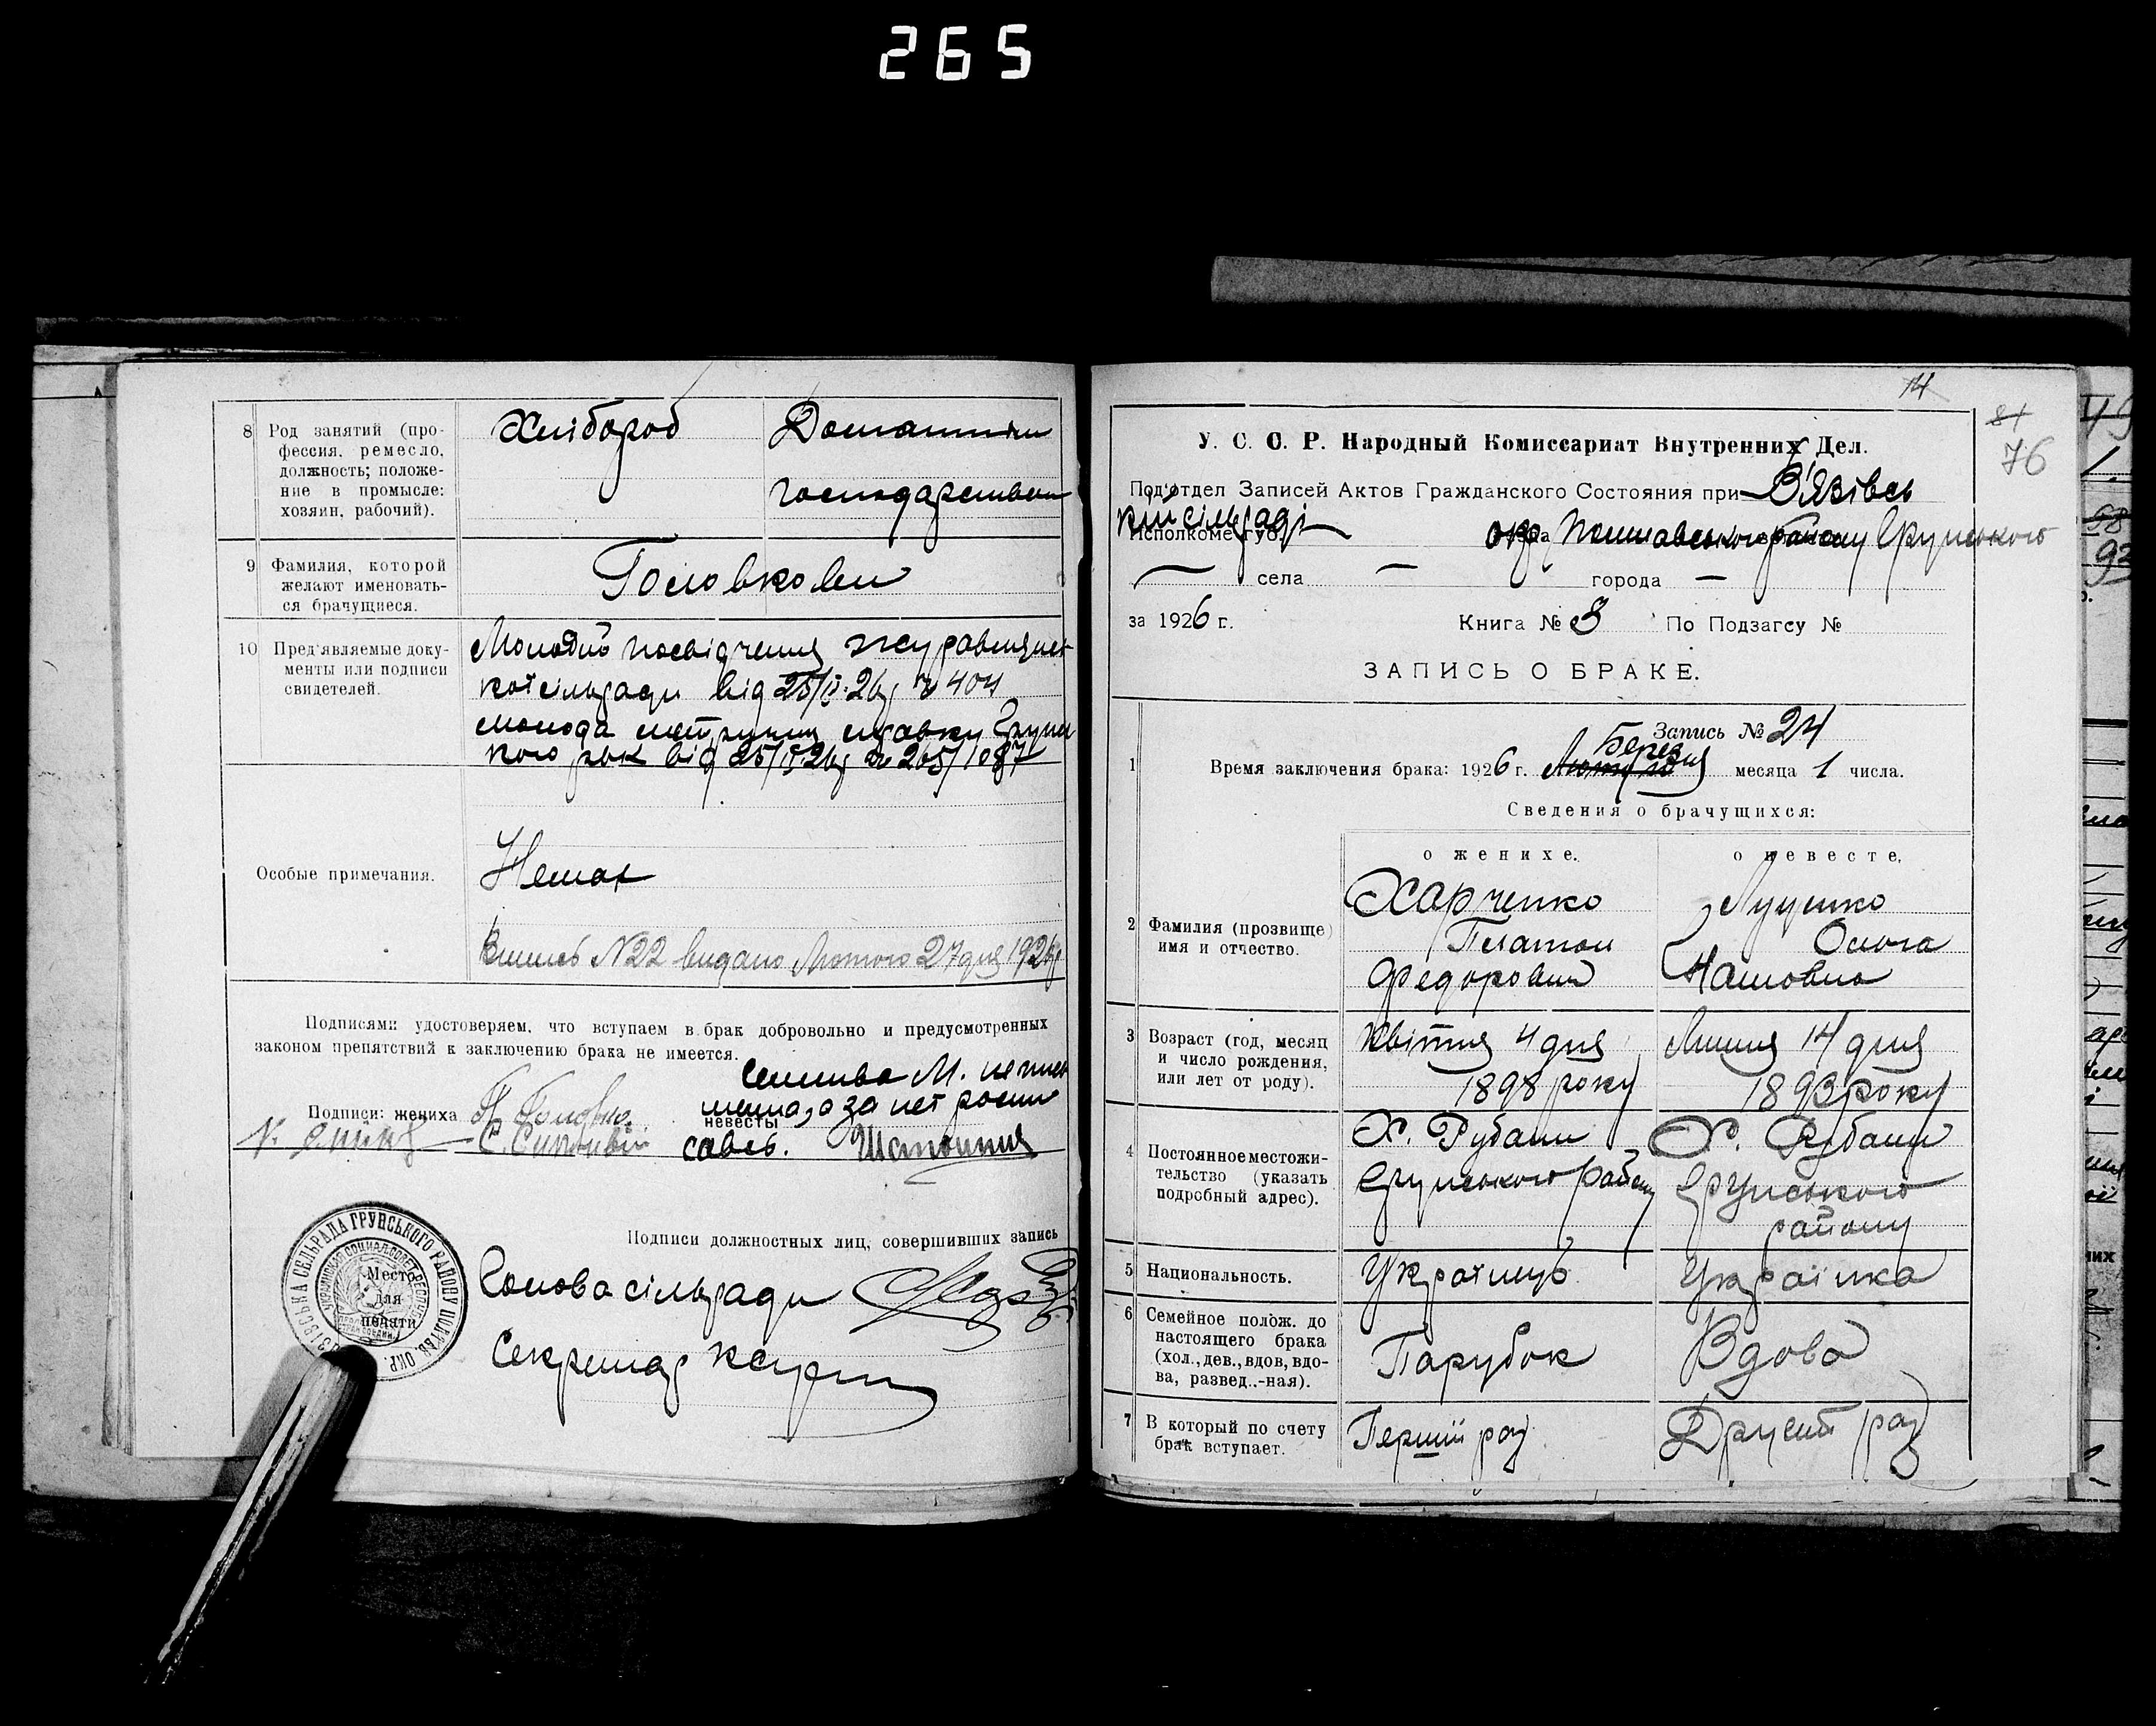 265
8 Род занятий (про-
фессия, ремесло,
должность; положе-
ние в промысле:
хозяин, рабочий).
Хлібороб
Домашнім
господарством
9 Фамилия, которой
желают именовать-
ся брачущиеся.
Головкови
10 Пред'являемые доку-
менты или подписи
свидетелей.
Молодий посвідчення
сільради від 25/II-26р № 404
молода
від 25/II-26р № 265/1087
Особые примечания.
Немає
Выпись №22 видано Лютого 27 дня 1926р
Подписями удостоверяем, что вступаем в брак добровольно и предусмотренных
законом препятствий к заключению брака не имеется.
Подписи: жениха
невесты
ГРУНСЬКОГО РАЙОНУ ПОЛТАВ. ОКР.
Место
для
печати
Подписи должностных лиц, совершивших запись
Голова сільради
Секретар
14
81
76
У. С. С. Р. Народный Комиссариат Внутренних Дел.
Под'отдел Записей Актов Гражданского Состояния при В'язівсь
кий сільраді
Исполкоме губ. окр. Полтавського району Грунського
села города
за 1926 г. Книга № 3 По Подзагсу №
ЗАПИСЬ О БРАКЕ.
Запись № 24
Березня
1 Время заключения брака: 1926 г. Лютого месяца 1 числа.
Сведения о брачущихся:
о женихе. о невесте.
2 Фамилия (прозвище)
имя и отчество.
Харченко
Платон
Федорович
Луценко
Ольга
3 Возраст (год, месяц
и число рождения,
или лет от роду).
Квітня 4 дня
1898 року
Липня 14 дня
1893 року
4 Постоянное местожи-
тельство (указать
подробный адрес).
Х. Рубани
Грунського району
Х. Рубани
Грунського
району
5 Национальность.
Українець
Українка
6 Семейное полож. до
настоящего брака
(хол., дев., вдов, вдо-
ва, развед..-ная).
Парубок
Вдова
7 В который по счету
брак вступает.
Перший раз
Другий раз